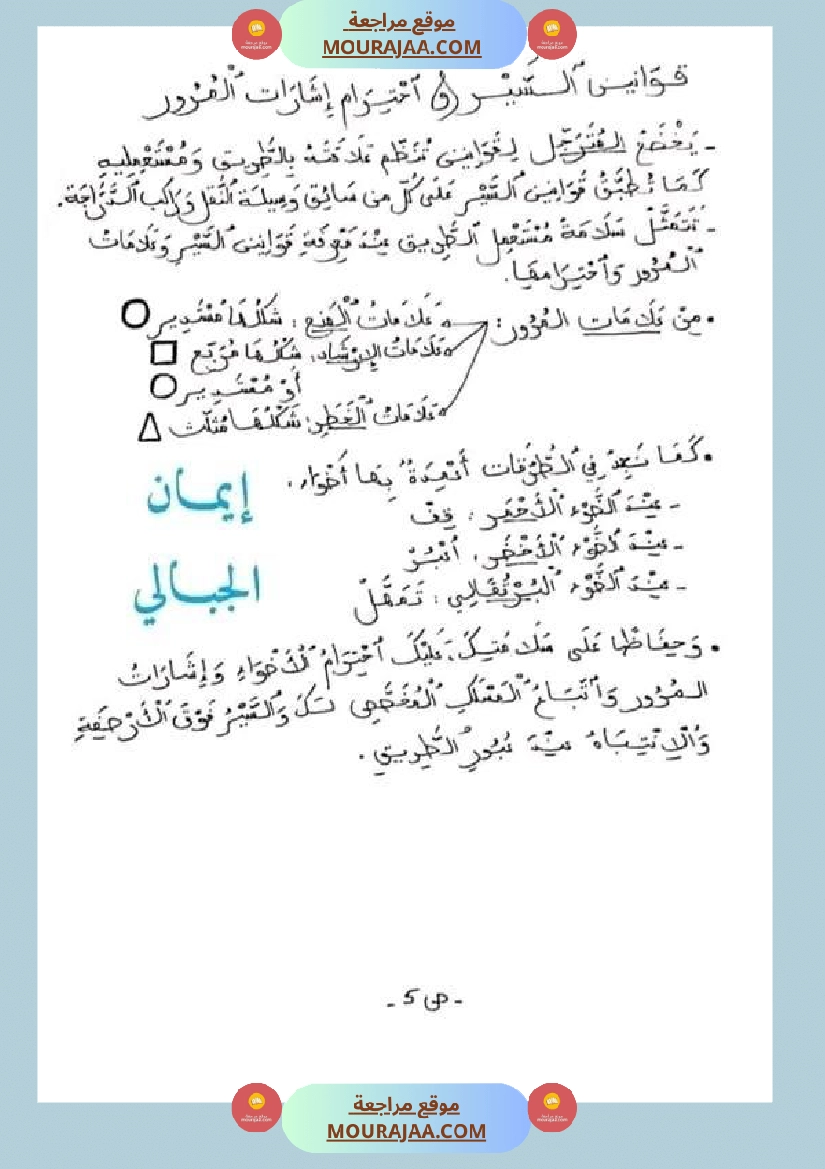 موقع مراجعة
MOURAJAA.COM
قَوَانِينُ السَّيْرِ وَ احْتِرَام إِشَارَات الْمُرُور
- يَخْضَعُ المُتَرَجِّل لِقَوَانِينَ تُنَظِّم عَلَاقَتَهُ بِالطَّرِيقِ وَمُسْتَعْمِلِيهِ
كَمَا تُطَبَّقُ قَوَانِينُ السَّيْرِ عَلَى كُلّ مِن سَائِق وَسِيلَة النَّقْل وَرَاكِب الدَّرَّاجَة.
- تَتَمَثَّل سَلَامَةُ مُسْتَعْمِل الطَّرِيق عِنْدَ مَعْرِفَةِ قَوَانِينِ السَّيْرِ وَعَلَامَاتِ
الْمُرُور وَاحْتِرَامِهَا.
• مِنْ عَلَامَات المُرُور:
عَلَامَاتُ الْمَنع: شَكْلُهَا مُسْتَدِير
عَلَامَاتُ الإِرْشَاد: شَكْلُهَا مُرَبَّع
أَوْ مُسْتَدِير
عَلَامَاتُ الْخَطَر: شَكْلُهَا مُثَلَّث
• كَمَا نَجِدُ فِي الطُّرُقَات أَعْمِدَةً بِهَا أَضْوَاء.
- عِنْدَ الضَّوْء الأَحْمَر: قِفْ
- عِنْدَ الضَّوْء الأَخْضَر: اُعْبُرْ
- عِنْدَ الضَّوْء البُرْتُقَالِي: تَمَهَّلْ
إيمان
الجبالي
• وَحِفَاظًا عَلَى سَلَامَتِكَ، عَلَيْكَ احْتِرَامُ الْأَضْوَاءِ وَإِشَارَاتِ
المُرُور وَاتِّبَاعُ الْمَسْلَكِ الْمُخَصَّصِ لَكَ وَالسَّيْرُ فَوْقَ الْرَّصِيفِ
وَالِانْتِبَاهُ عِنْدَ عُبُورِ الطَّرِيقِ.
- ص 5 -
موقع مراجعة
MOURAJAA.COM